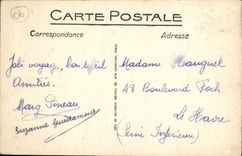 CARTE POSTALE
Correspondance
Adresse
Joli voyage, bon soleil
Amitiés.
Marg Pineau
Suzanne
Madame Hauguel
48 Boulevard Foch
Le Havre
(Seine Inférieure)